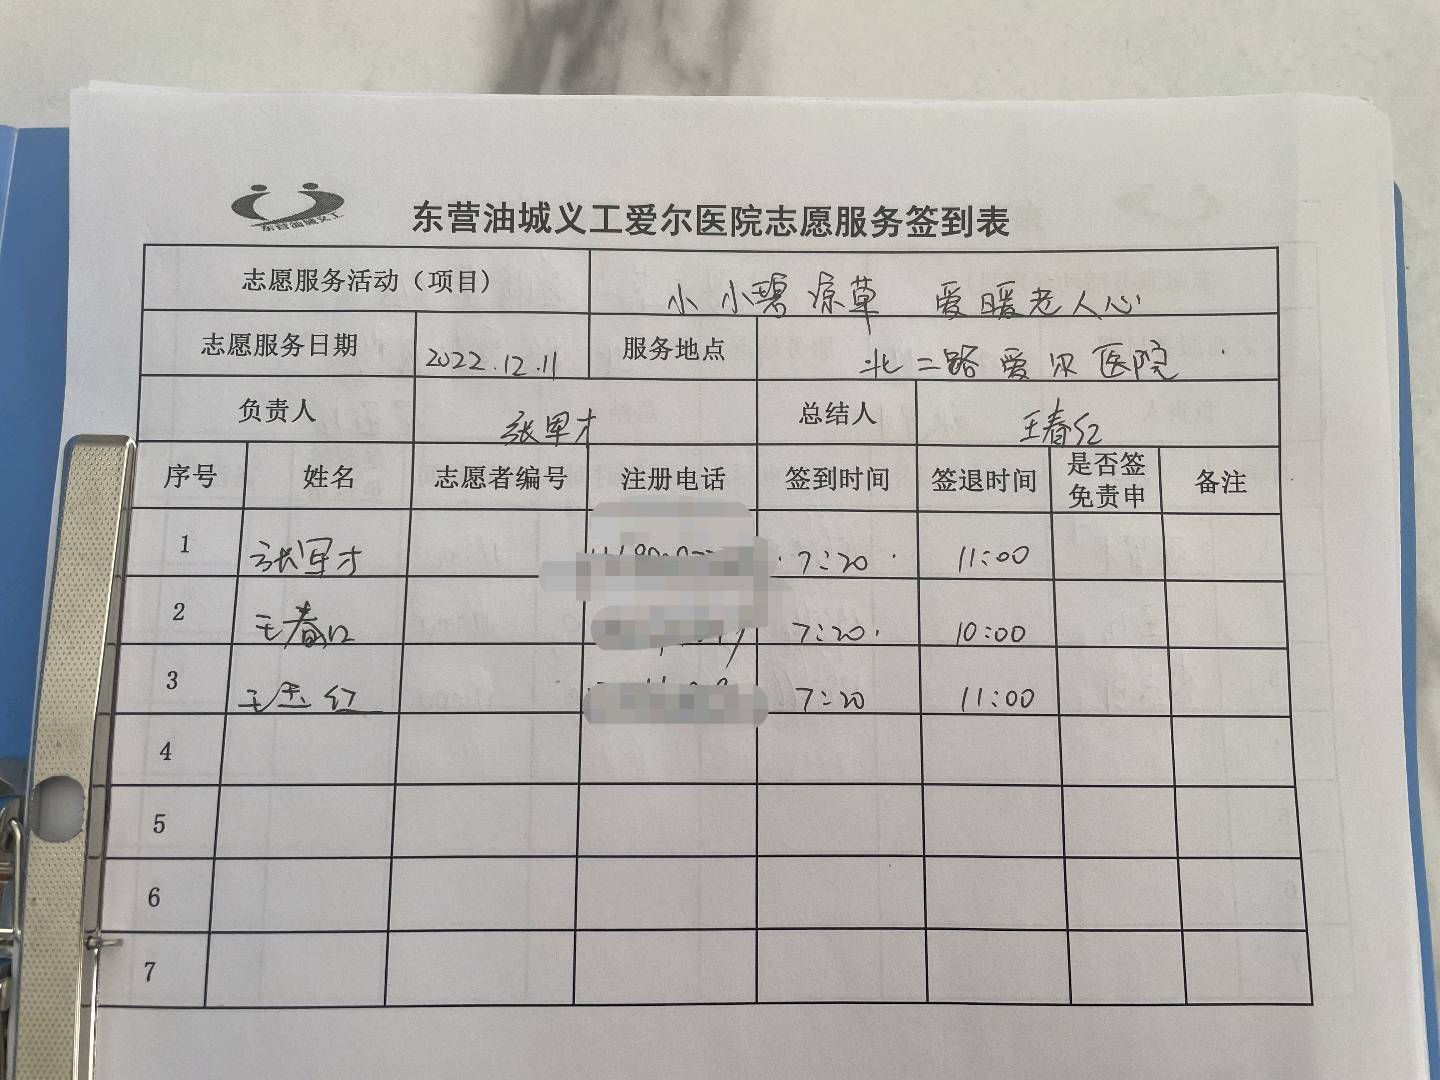 东营油城义工
东营油城义工爱尔医院志愿服务签到表
志愿服务活动（项目） 小小碧凉草 爱暖老人心
志愿服务日期 2022.12.11 服务地点 北二路爱尔医院
负责人 张军才 总结人 王春红
序号 姓名 志愿者编号 注册电话 签到时间 签退时间 是否签 备注
免责申
1 张军才 7:20 11:00
2 王春红 7:20 10:00
3 王玉红 7:20 11:00
4
5
6
7